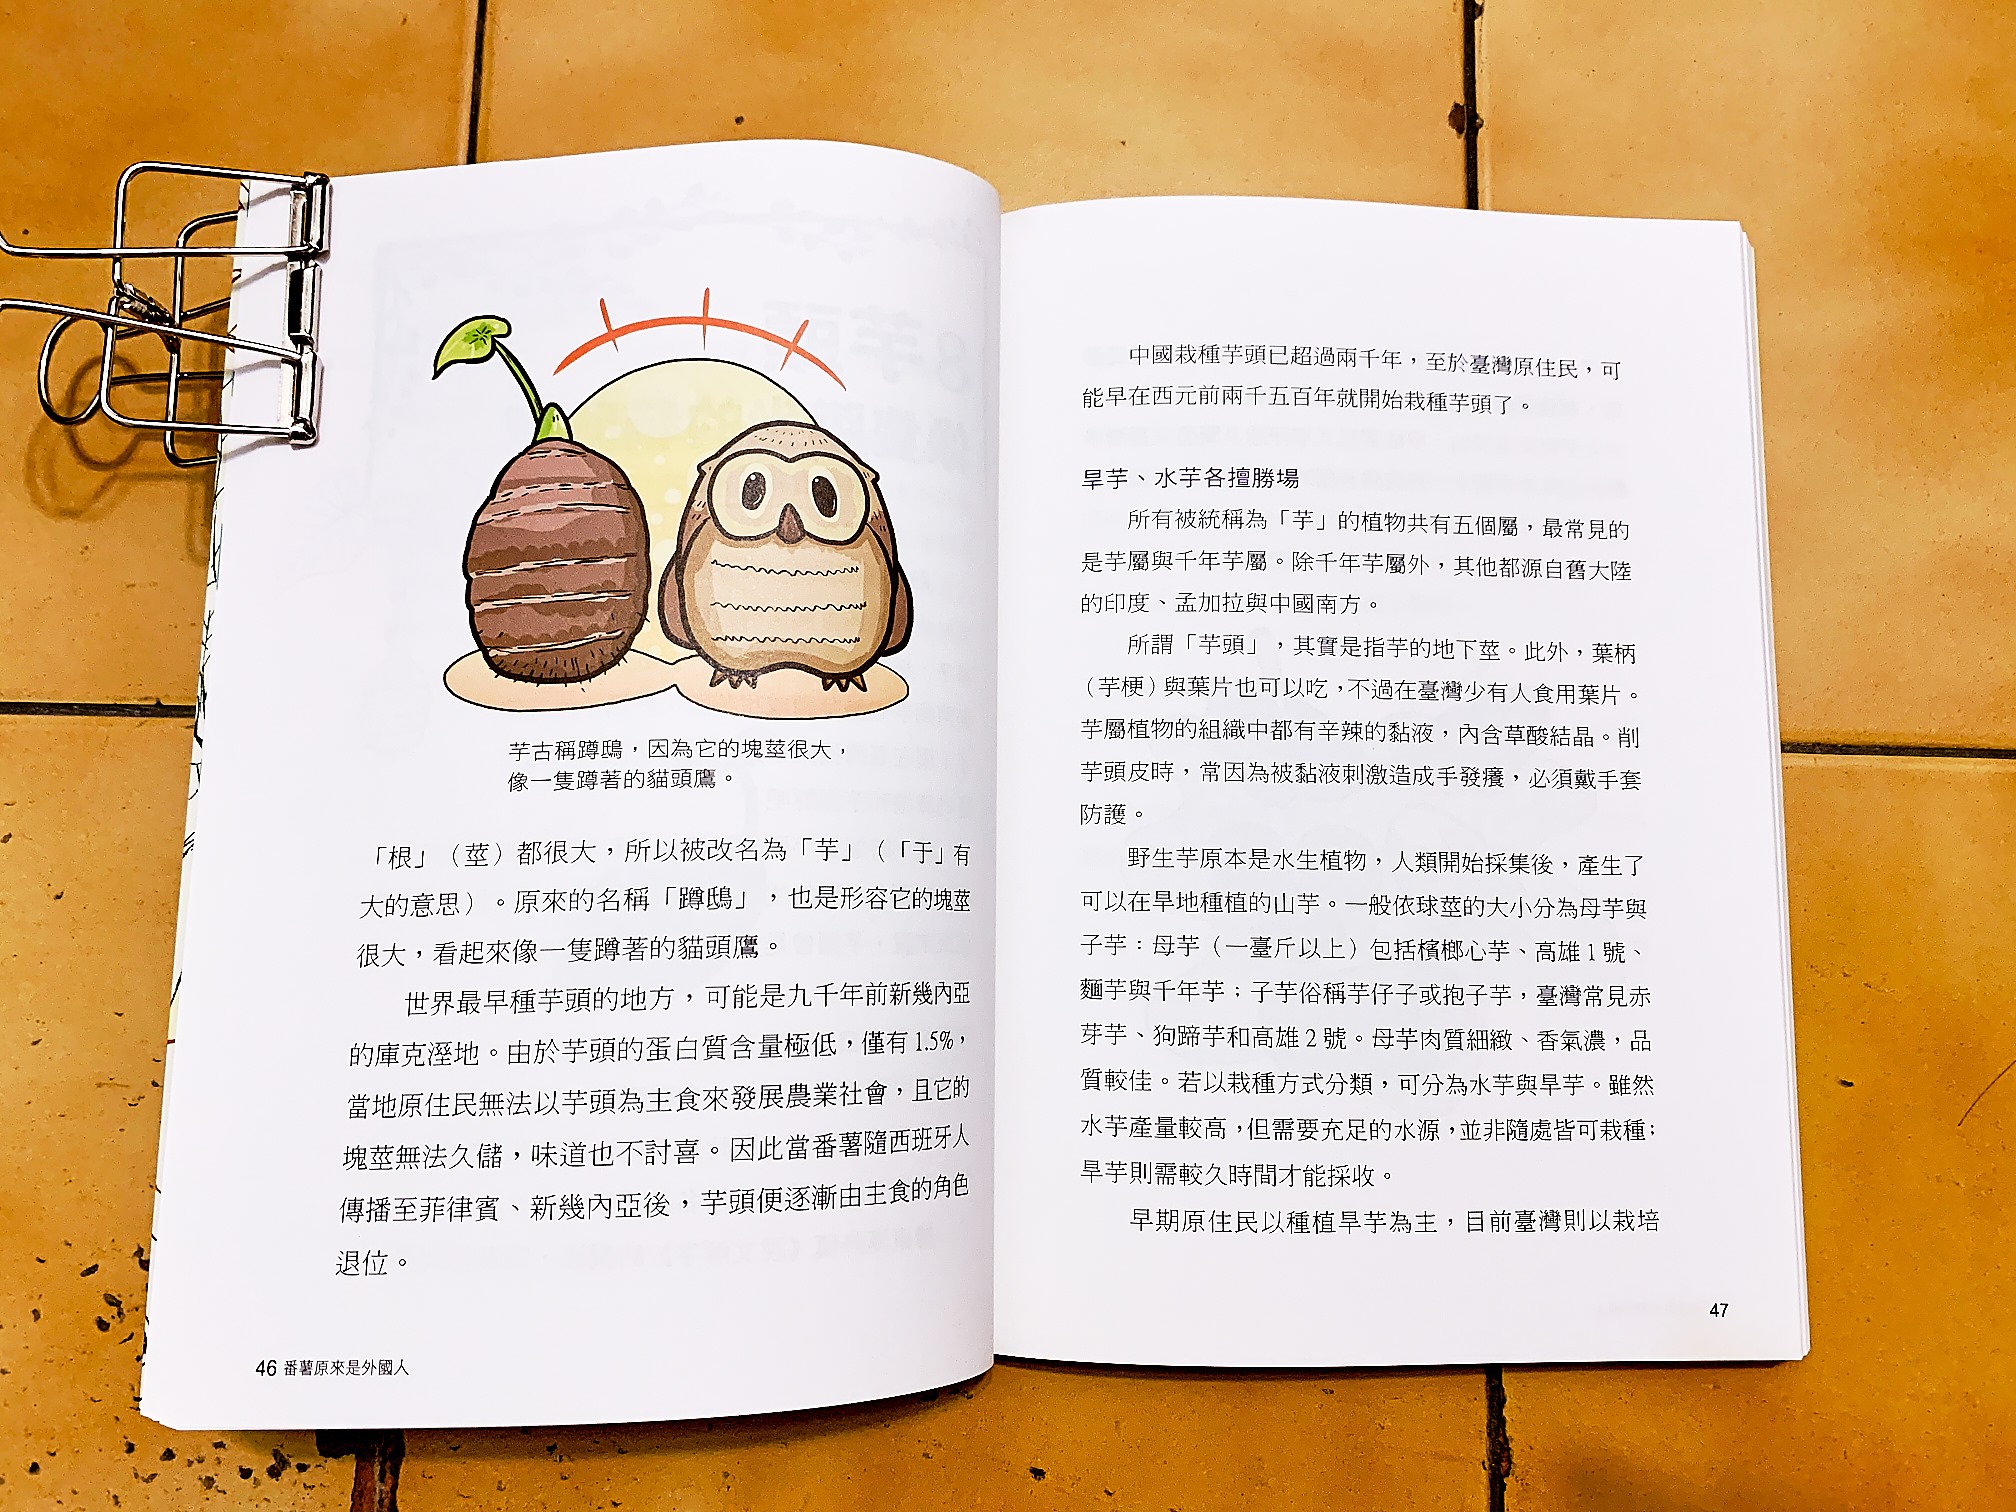 芋古稱蹲鴟，因為它的塊莖很大，
像一隻蹲著的貓頭鷹。
「根」（莖）都很大，所以被改名為「芋」（「于」有
大的意思）。原來的名稱「蹲鴟」，也是形容它的塊莖
很大，看起來像一隻蹲著的貓頭鷹。
世界最早種芋頭的地方，可能是九千年前新幾內亞
的庫克溼地。由於芋頭的蛋白質含量極低，僅有1.5%，
當地原住民無法以芋頭為主食來發展農業社會，且它的
塊莖無法久儲，味道也不討喜。因此當番薯隨西班牙人
傳播至菲律賓、新幾內亞後，芋頭便逐漸由主食的角色
退位。
46 番薯原來是外國人
中國栽種芋頭已超過兩千年，至於臺灣原住民，可
能早在西元前兩千五百年就開始栽種芋頭了。
旱芋、水芋各擅勝場
所有被統稱為「芋」的植物共有五個屬，最常見的
是芋屬與千年芋屬。除千年芋屬外，其他都源自舊大陸
的印度、孟加拉與中國南方。
所謂「芋頭」，其實是指芋的地下莖。此外，葉柄
（芋梗）與葉片也可以吃，不過在臺灣少有人食用葉片。
芋屬植物的組織中都有辛辣的黏液，內含草酸結晶。削
芋頭皮時，常因為被黏液刺激造成手發癢，必須戴手套
防護。
野生芋原本是水生植物，人類開始採集後，產生了
可以在旱地種植的山芋。一般依球莖的大小分為母芋與
子芋：母芋（一臺斤以上）包括檳榔心芋、高雄1號、
麵芋與千年芋；子芋俗稱芋仔子或抱子芋，臺灣常見赤
芽芋、狗蹄芋和高雄2號。母芋肉質細緻、香氣濃，品
質較佳。若以栽種方式分類，可分為水芋與旱芋。雖然
水芋產量較高，但需要充足的水源，並非隨處皆可栽種；
旱芋則需較久時間才能採收。
早期原住民以種植旱芋為主，目前臺灣則以栽培
47